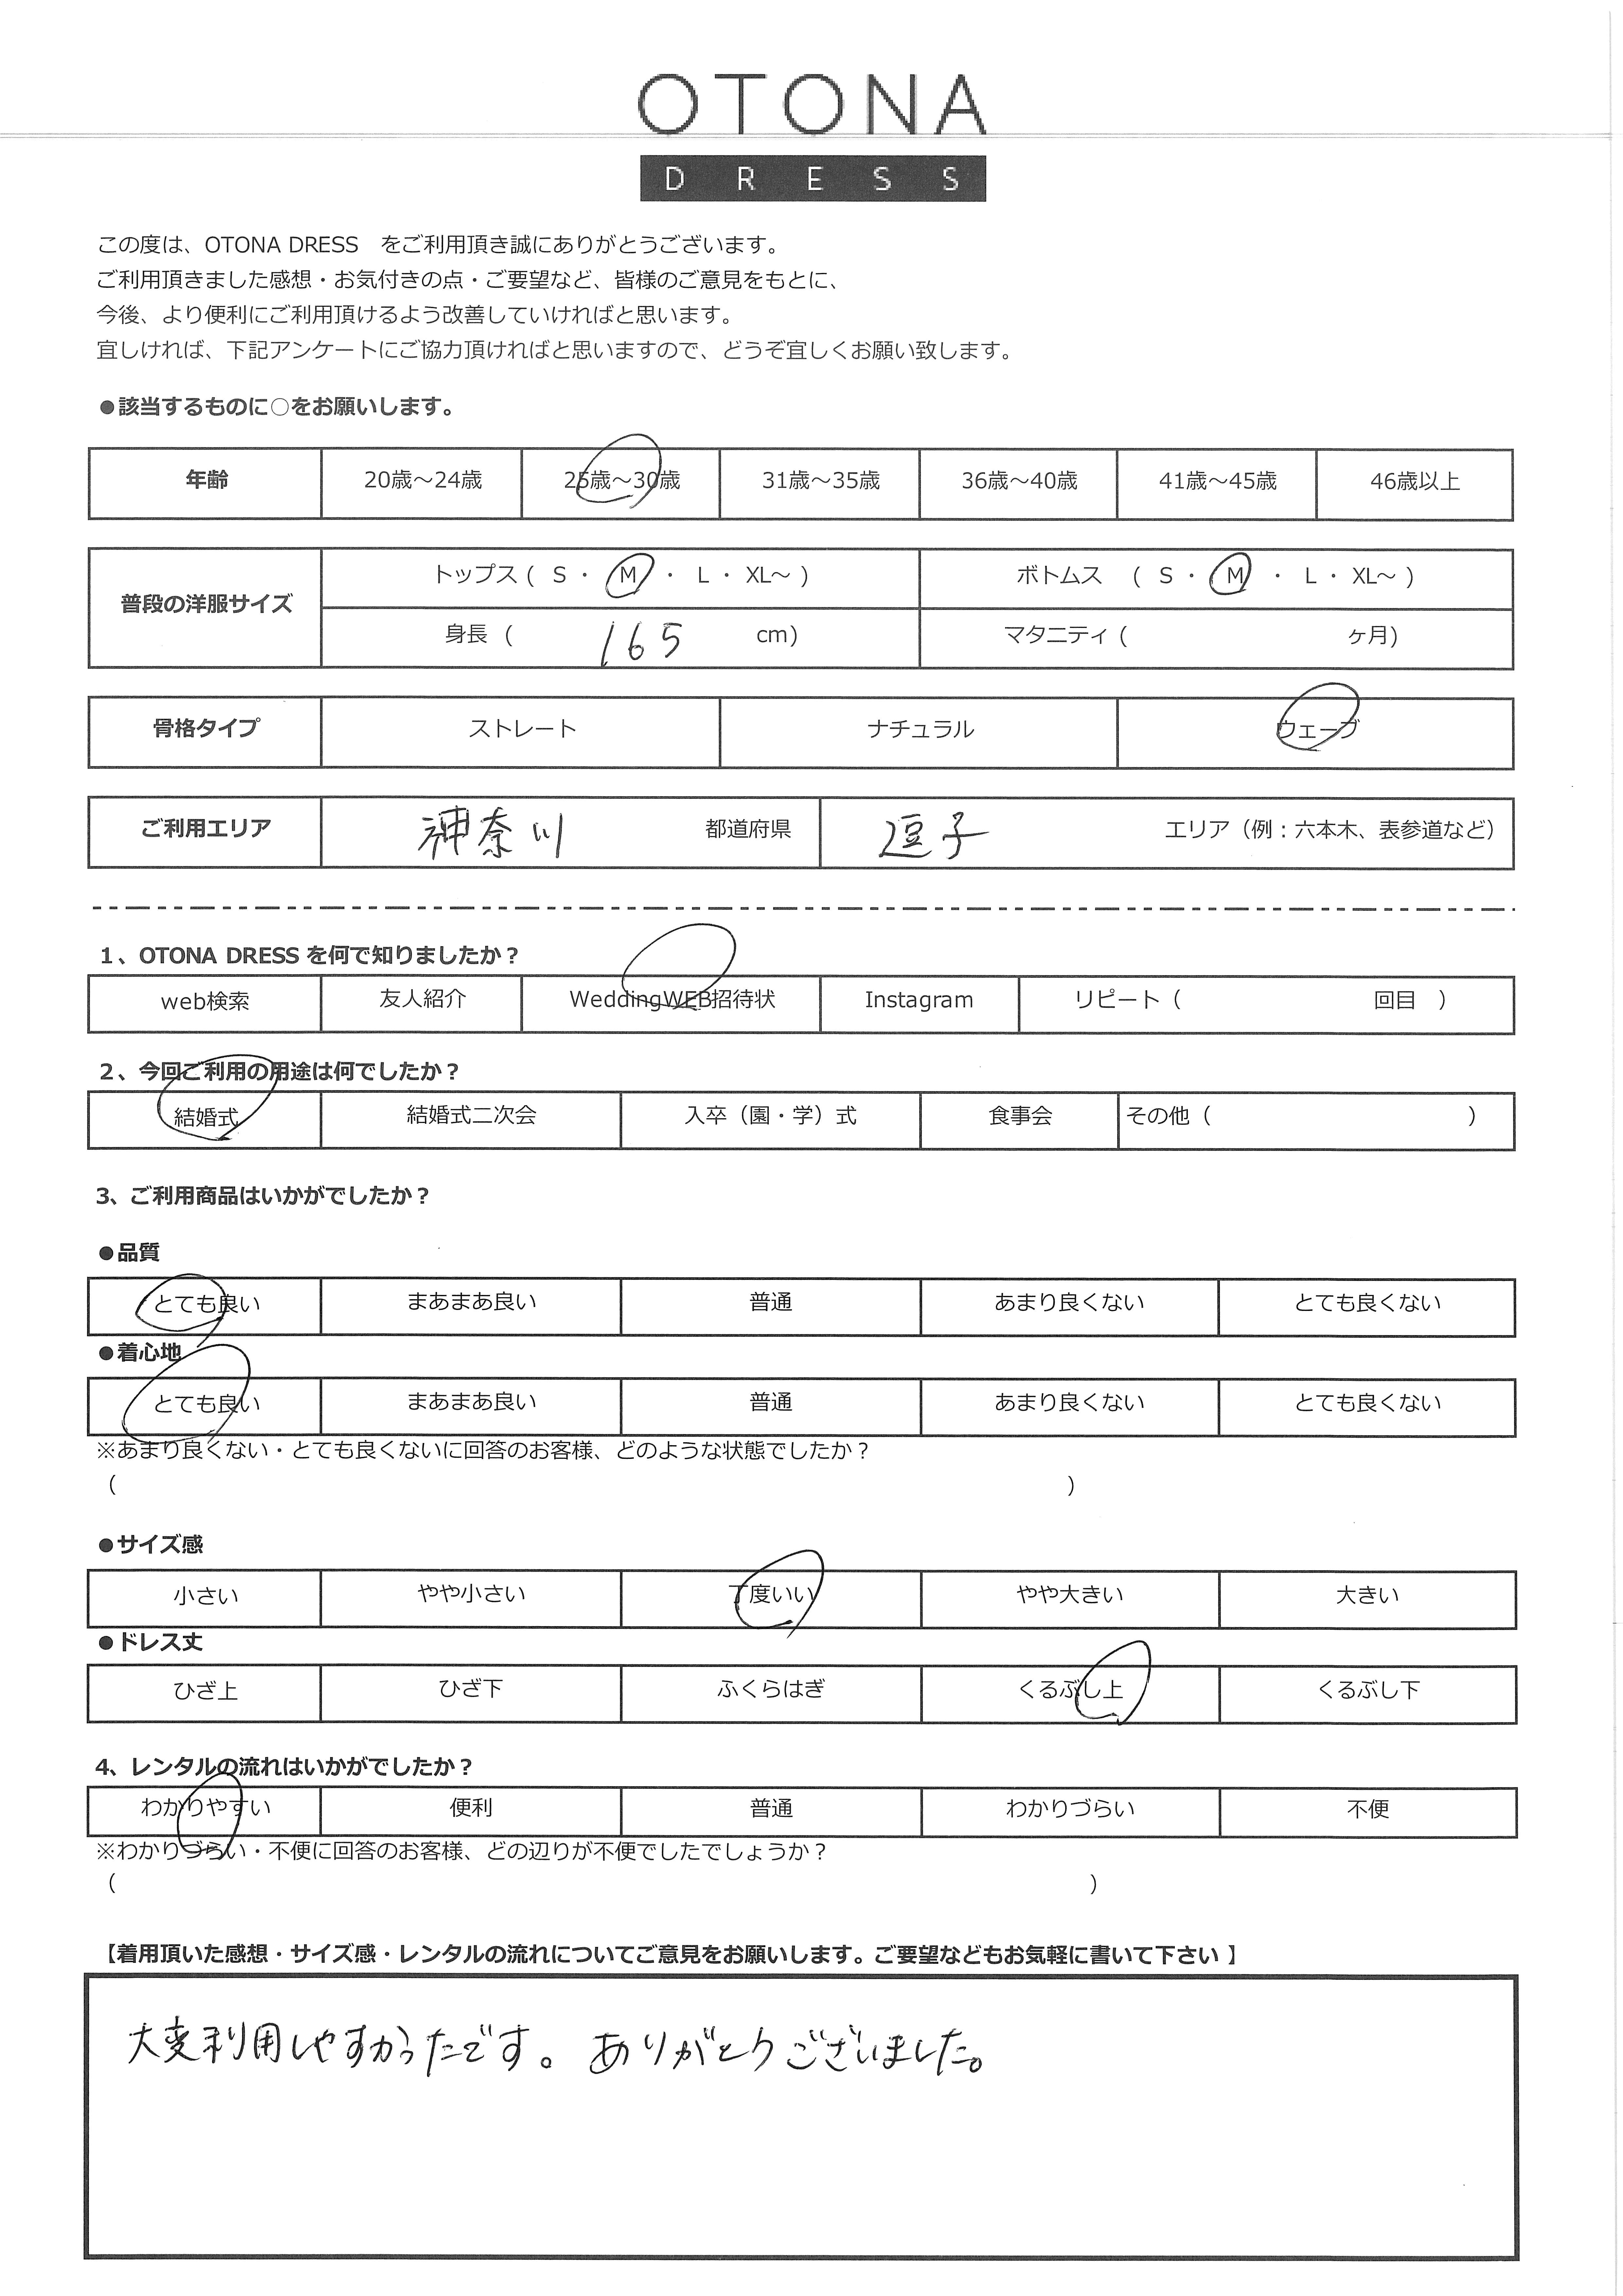 OTONA
DRESS
この度は、OTONA DRESS　をご利用頂き誠にありがとうございます。
ご利用頂きました感想・お気付きの点・ご要望など、皆様のご意見をもとに、
今後、より便利にご利用頂けるよう改善していければと思います。
宜しければ、下記アンケートにご協力頂ければと思いますので、どうぞ宜しくお願い致します。
●該当するものに○をお願いします。
年齢 20歳～24歳 25歳～30歳 31歳～35歳 36歳～40歳 41歳～45歳 46歳以上
普段の洋服サイズ トップス ( S ・ M ・ L ・ XL～ ) ボトムス ( S ・ M ・ L ・ XL～ )
身長 ( 165 cm) マタニティ ( ヶ月)
骨格タイプ ストレート ナチュラル ウェーブ
ご利用エリア 神奈川 都道府県 逗子 エリア（例：六本木、表参道など）
1、OTONA DRESS を何で知りましたか？
web検索 友人紹介 WeddingWEB招待状 Instagram リピート（ 回目 ）
2、今回ご利用の用途は何でしたか？
結婚式 結婚式二次会 入卒（園・学）式 食事会 その他（ ）
3、ご利用商品はいかがでしたか？
●品質
とても良い まあまあ良い 普通 あまり良くない とても良くない
●着心地
とても良い まあまあ良い 普通 あまり良くない とても良くない
※あまり良くない・とても良くないに回答のお客様、どのような状態でしたか？
（ ）
●サイズ感
小さい やや小さい 丁度いい やや大きい 大きい
●ドレス丈
ひざ上 ひざ下 ふくらはぎ くるぶし上 くるぶし下
4、レンタルの流れはいかがでしたか？
わかりやすい 便利 普通 わかりづらい 不便
※わかりづらい・不便に回答のお客様、どの辺りが不便でしたでしょうか？
（ ）
【着用頂いた感想・サイズ感・レンタルの流れについてご意見をお願いします。ご要望などもお気軽に書いて下さい 】
大変利用しやすかったです。ありがとうございました。